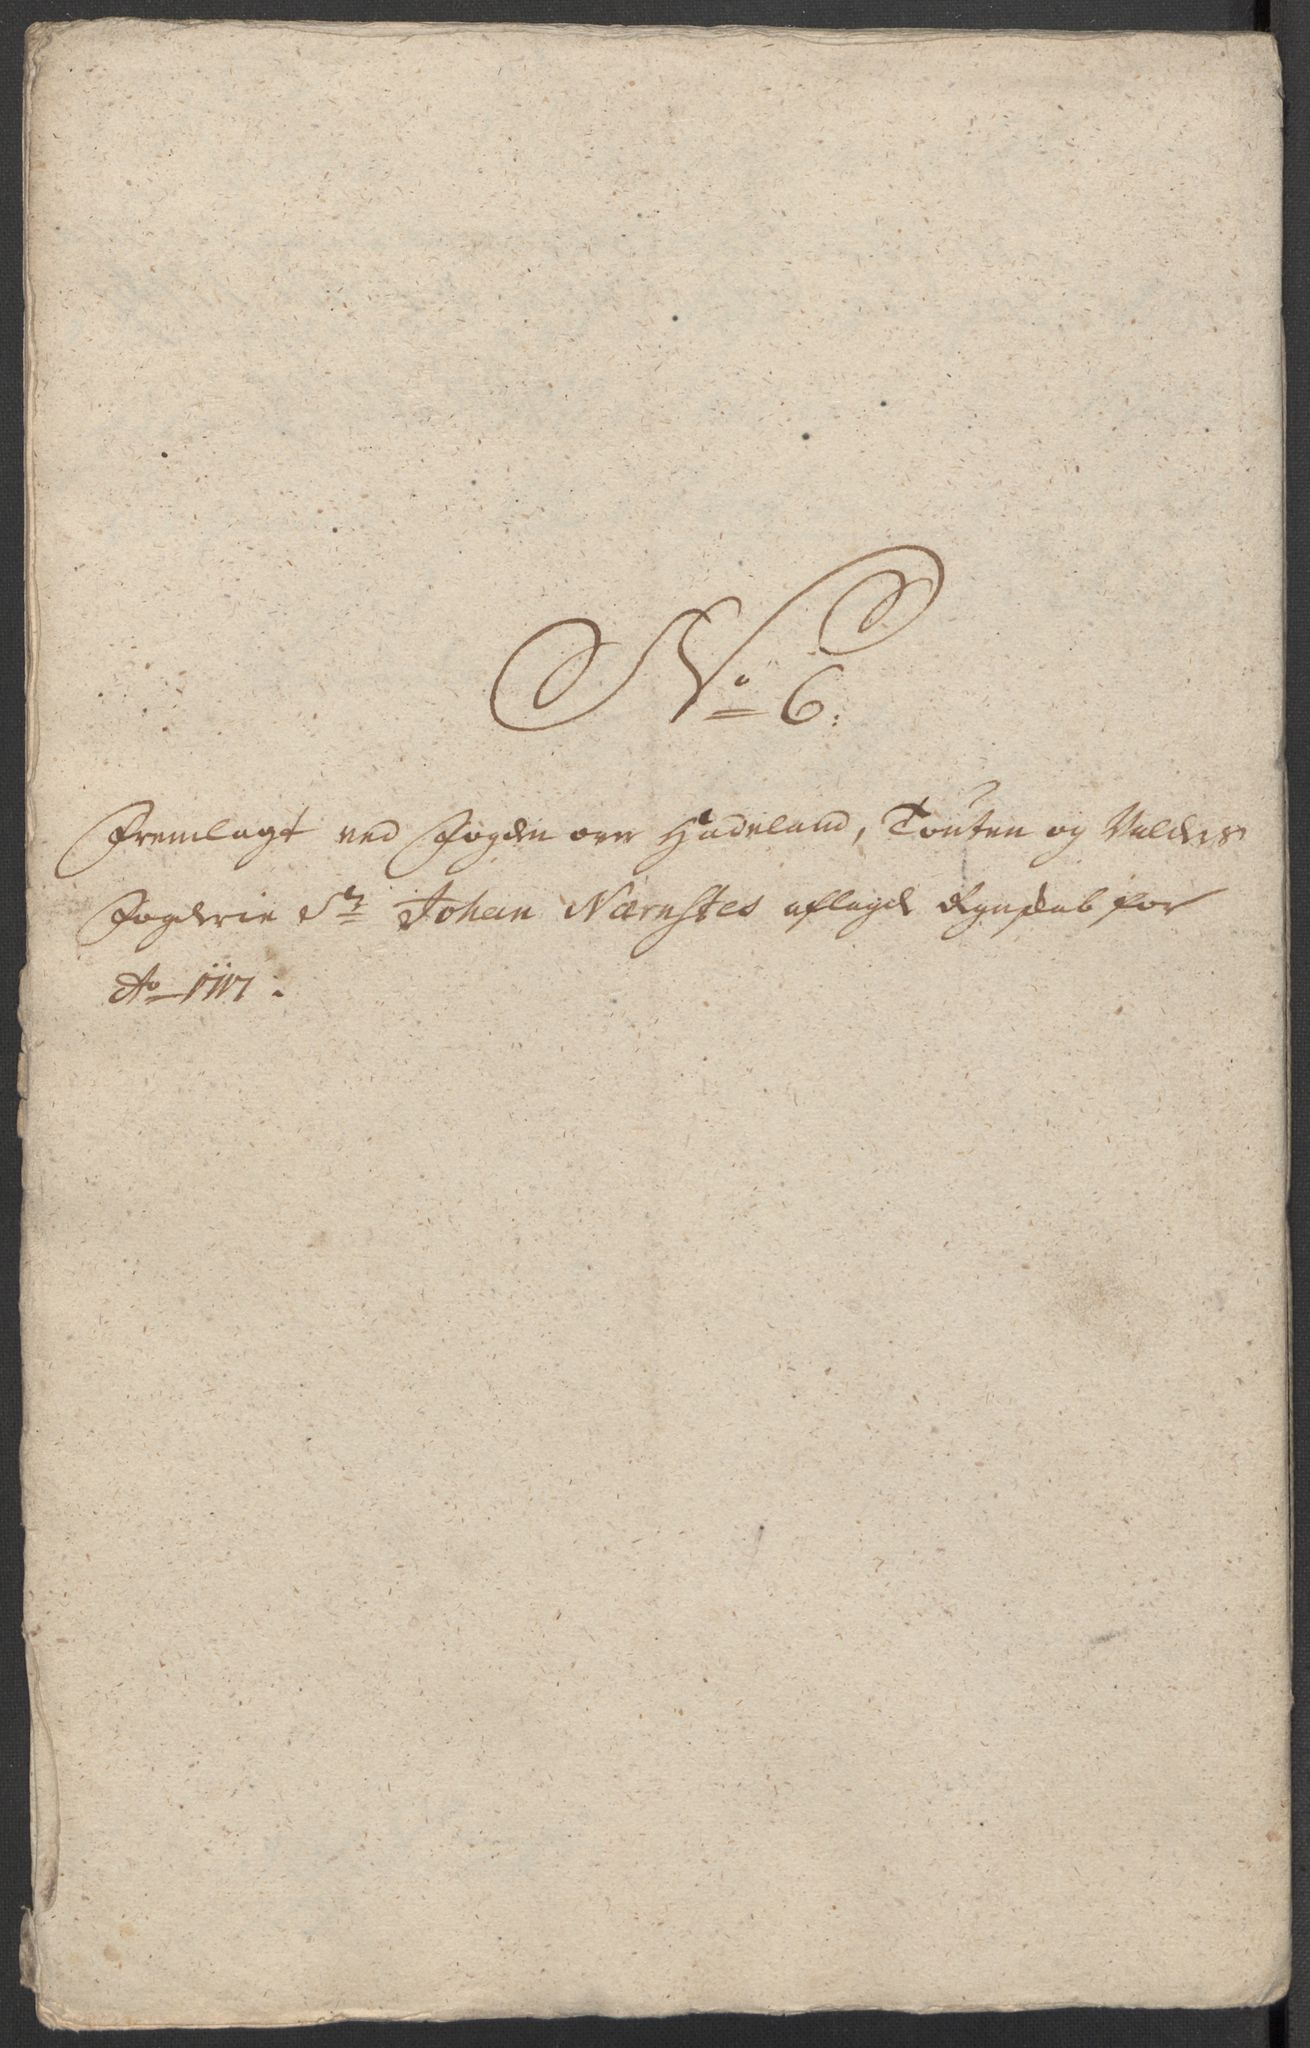 No 6:
Fremlagt ved Fogden over Hadeland, Touten og Valders
Fogderie Sr Johan Nærnstes aflagde Regnskab for
Ao 1717.